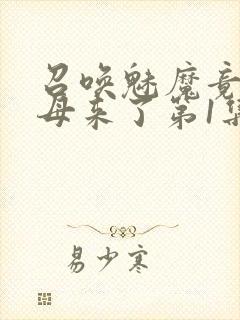 召唤魅魔竟
母来了第1集
易少寒